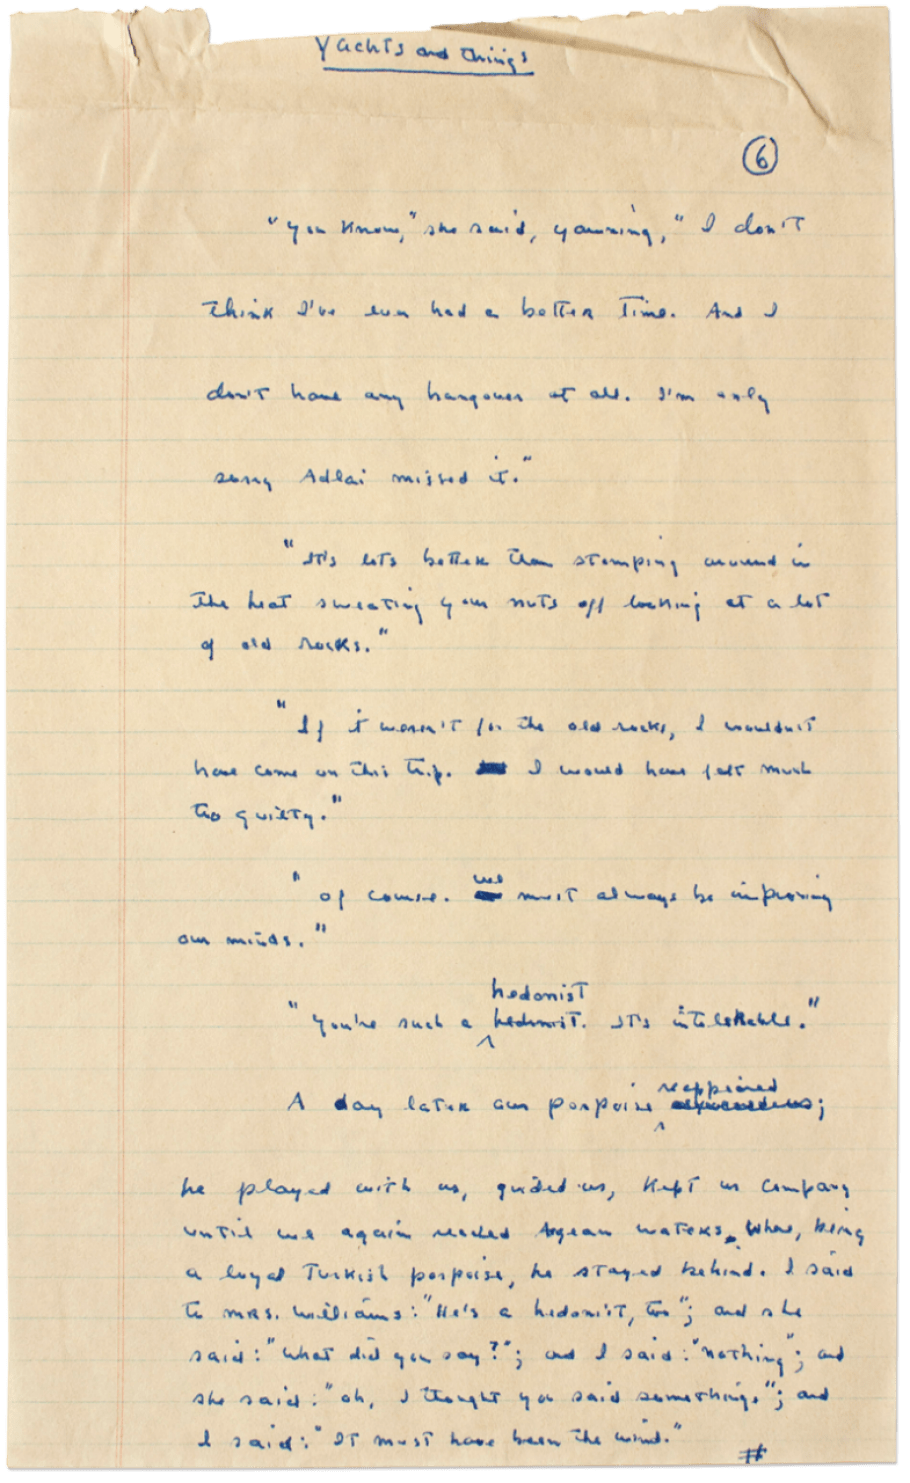 Yachts and Things
6
"You know," she said, yawning, "I don't
think I've ever had a better time. And I
don't have any hangover at all. I'm only
sorry Adlai missed it."
"It's lots better than stomping around in
the heat sweating your nuts off looking at a lot
of old rocks."
"If it weren't for the old rocks, I wouldn't
have come on this trip. I would have felt much
too guilty."
"Of course. We must always be improving
our minds."
hedonist
"You're such a hedonist. It's intolerable."
reappeared
A day later our porpoise ;
he played with us, guided us, kept us company
until we again reached Aegean waters. Where, being
a loyal Turkish porpoise, he stayed behind. I said
to Mrs. Williams: "He's a hedonist, too"; and she
said: "What did you say?"; and I said: "Nothing"; and
she said: "Oh, I thought you said something"; and
I said: "It must have been the wind."
#